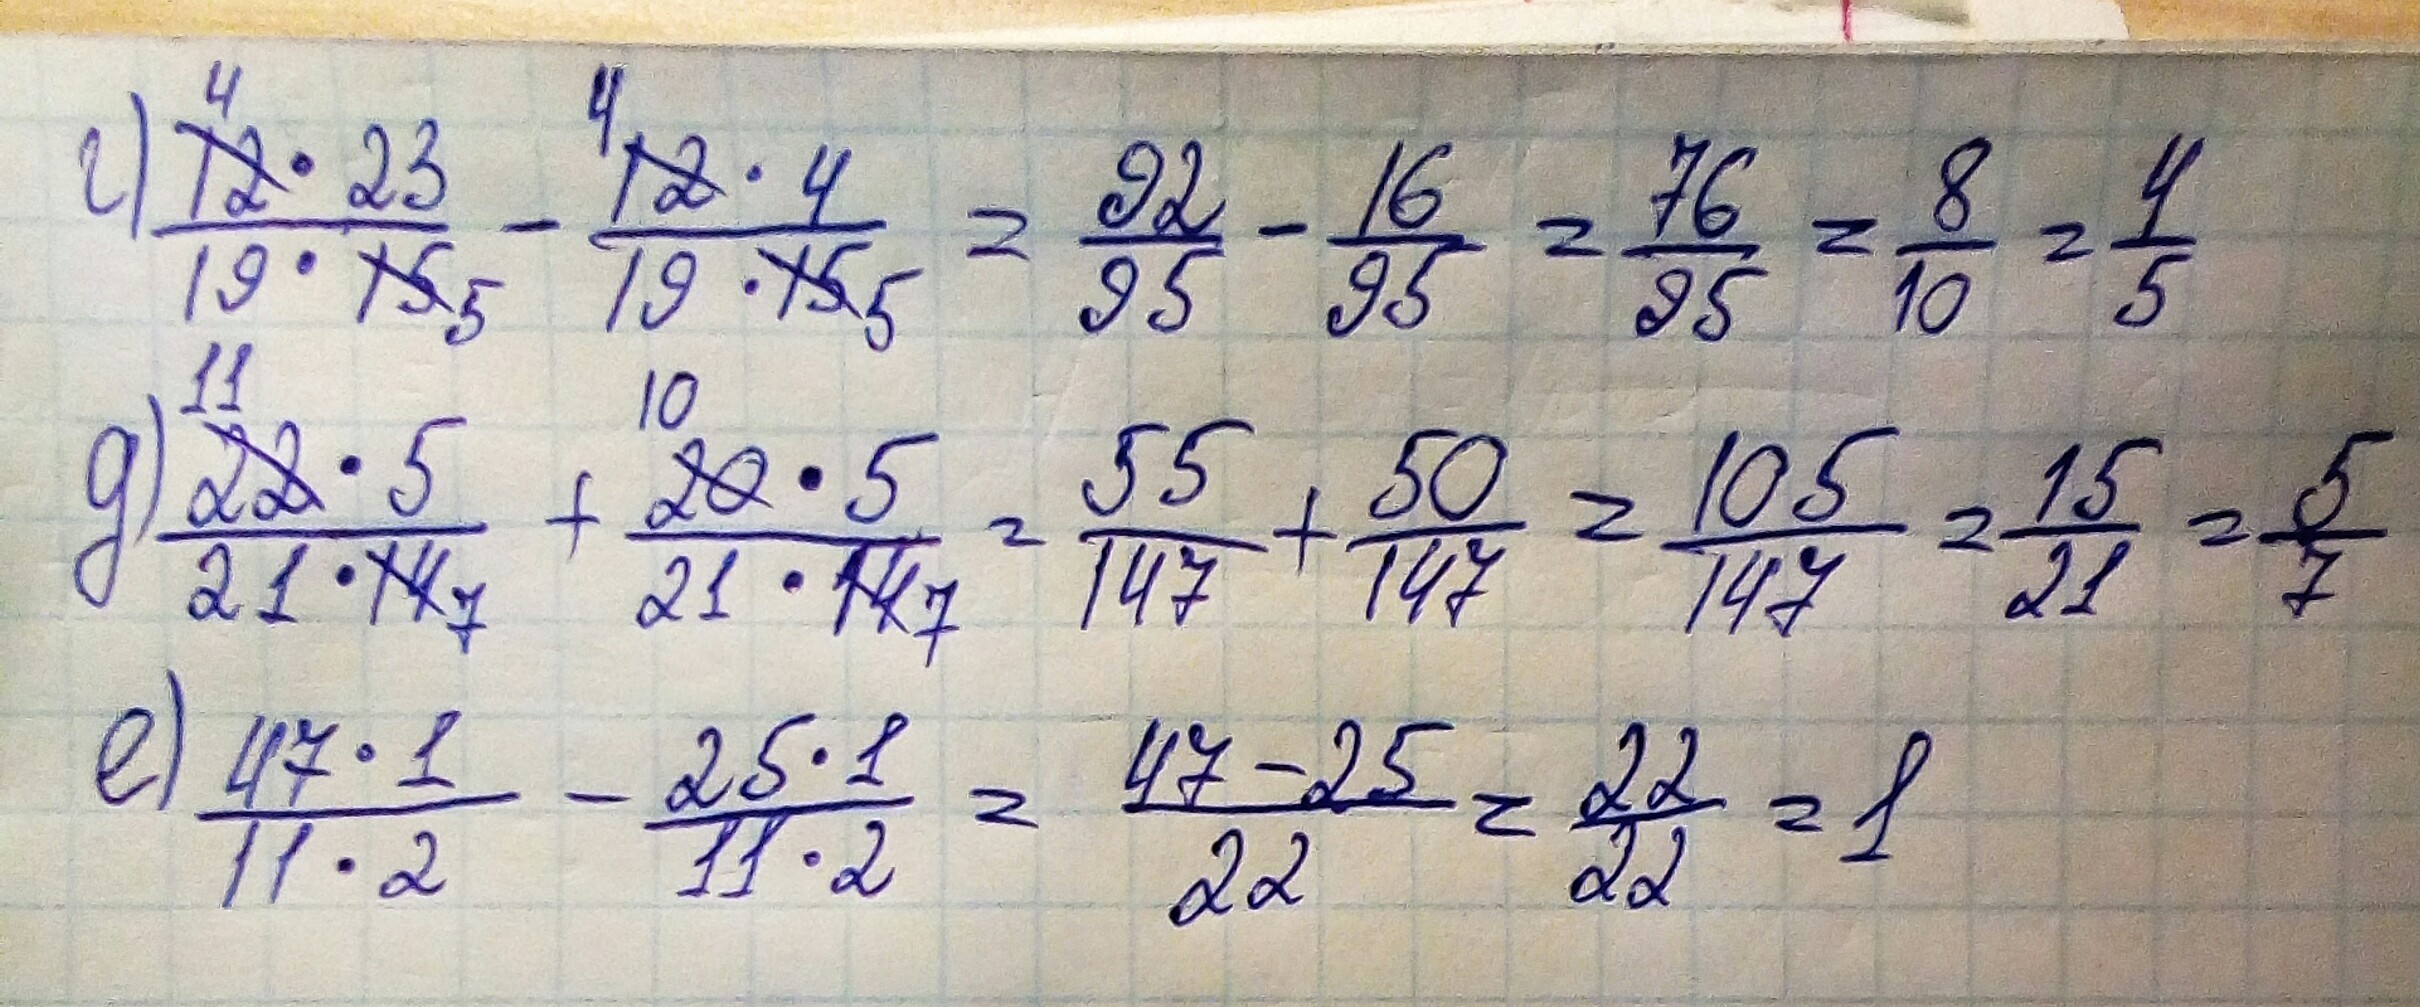 г) (12 · 23)/(19 · 15) - (12 · 4)/(19 · 15) = 92/95 - 16/95 = 76/95 = 8/10 = 4/5
4 4
5 5
д) (22 · 5)/(21 · 14) + (20 · 5)/(21 · 14) = 55/147 + 50/147 = 105/147 = 15/21 = 5/7
11 10
7 7
е) (47 · 1)/(11 · 2) - (25 · 1)/(11 · 2) = (47 - 25)/22 = 22/22 = 1